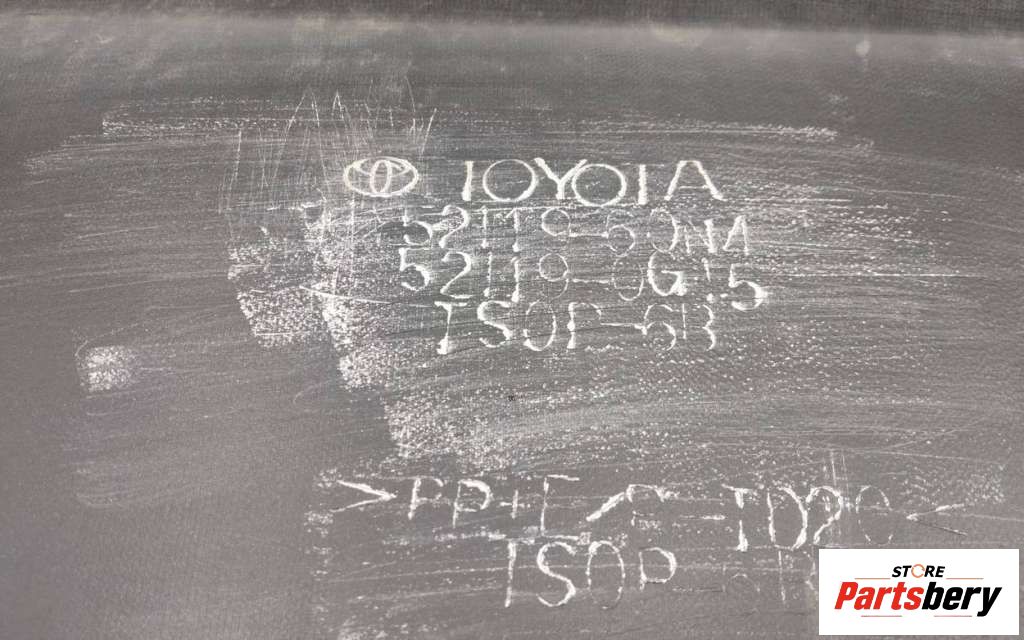 TOYOTA
52119-60NA
52119-0G
TSOP-6B
>PP+E/P-TD20<
TSOP
STORE
Partsbery